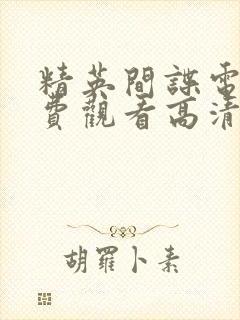 精英間諜電
費觀看高清
胡羅卜素